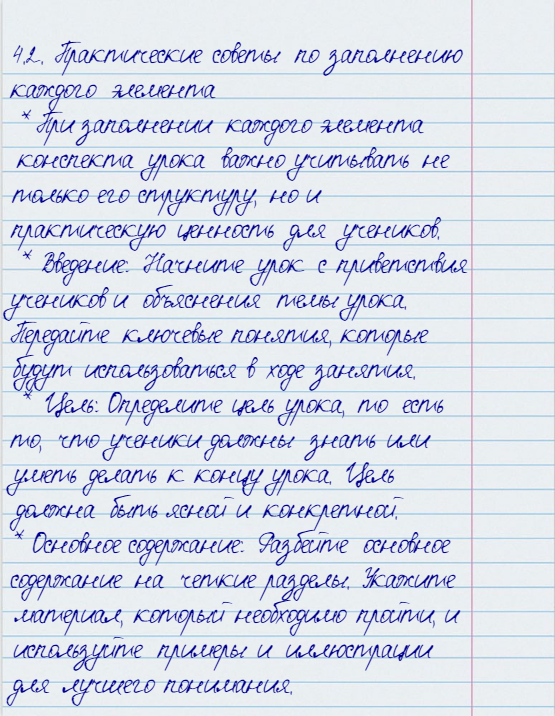 4.2. Практические советы по заполнению
каждого элемента
* При заполнении каждого элемента
конспекта урока важно учитывать не
только его структуру, но и
практическую ценность для учеников.
* Введение: Начните урок с приветствия
учеников и объяснения темы урока.
Передайте ключевые понятия, которые
будут использоваться в ходе занятия.
* Цель: Определите цель урока, то есть
то, что ученики должны знать или
уметь делать к концу урока. Цель
должна быть ясной и конкретной.
* Основное содержание: Разбейте основное
содержание на четкие разделы. Укажите
материал, который необходимо пройти, и
используйте примеры и иллюстрации
для лучшего понимания.